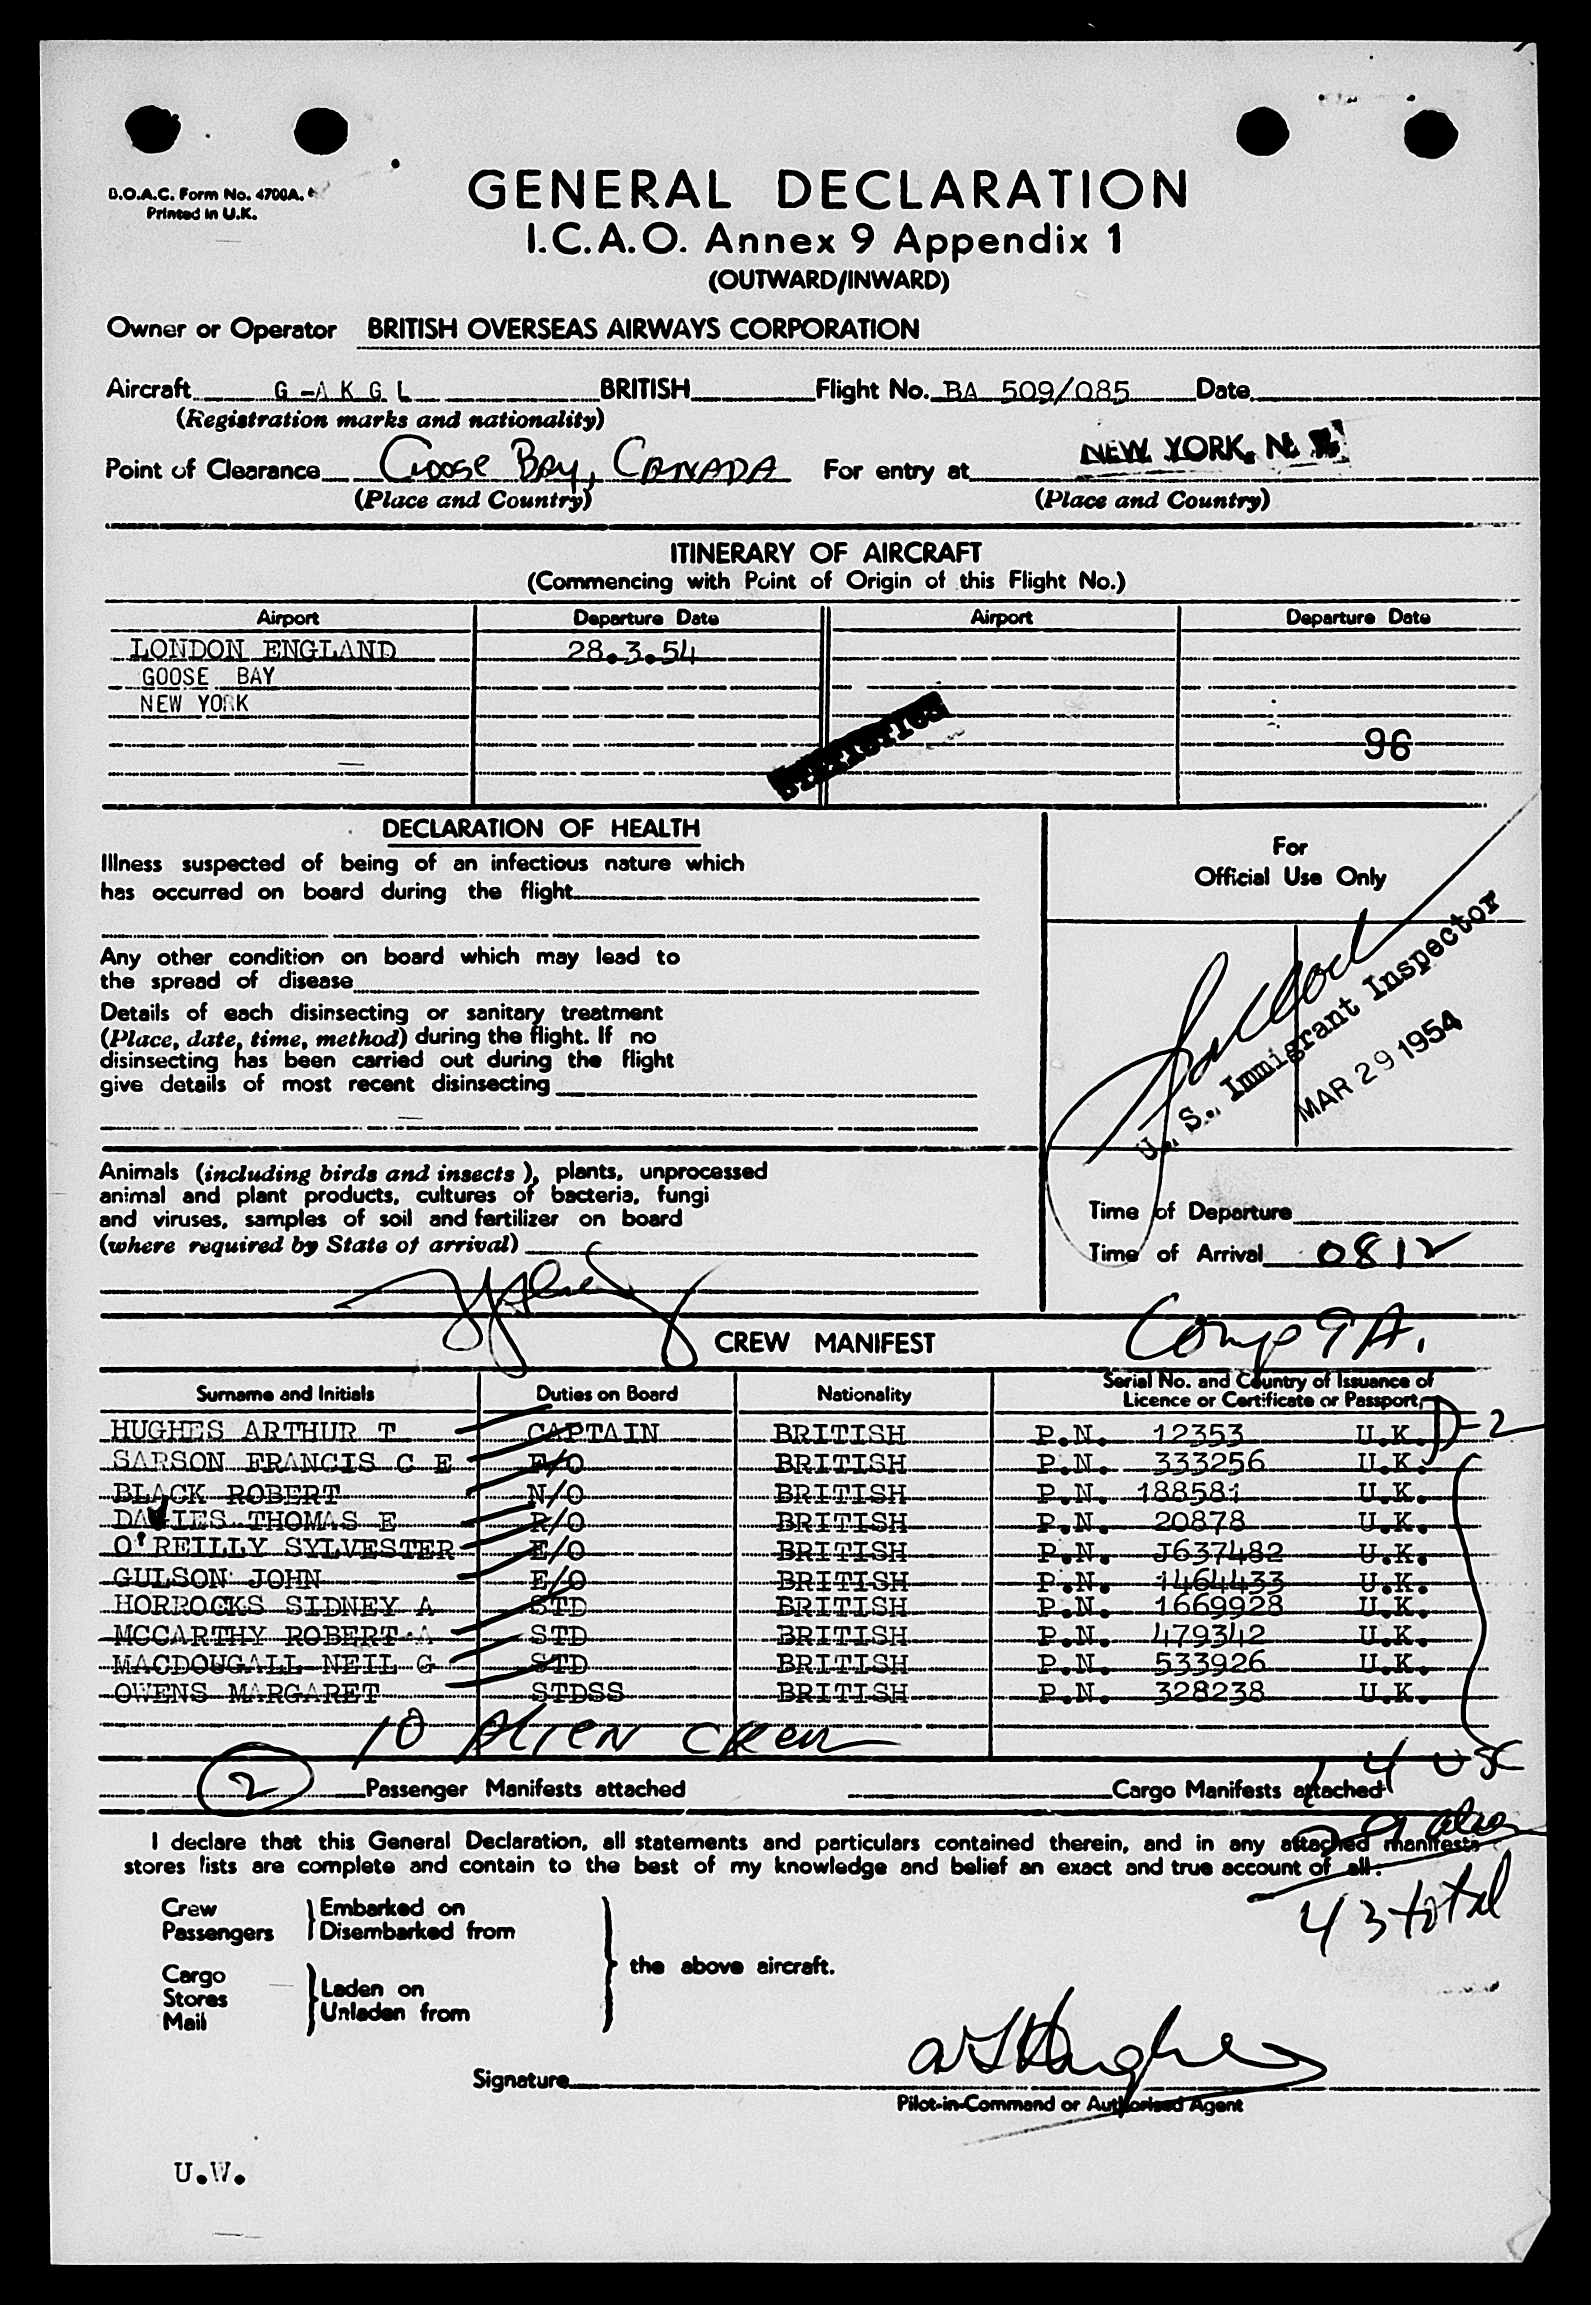 B.O.A.C. Form No. 4700A.
Printed in U.K.
GENERAL DECLARATION
I.C.A.O. Annex 9 Appendix 1
(OUTWARD/INWARD)
Owner or Operator BRITISH OVERSEAS AIRWAYS CORPORATION
Aircraft G-AKGL BRITISH Flight No. BA 509/085 Date
(Registration marks and nationality)
Point of Clearance Goose Bay, CANADA For entry at NEW YORK, N.
(Place and Country) (Place and Country)
ITINERARY OF AIRCRAFT
(Commencing with Point of Origin of this Flight No.)
Airport Departure Date Airport Departure Date
LONDON ENGLAND 28.3.54
GOOSE BAY
NEW YORK
STATISTICS
96
DECLARATION OF HEALTH
Illness suspected of being of an infectious nature which
has occurred on board during the flight
Any other condition on board which may lead to
the spread of disease
Details of each disinsecting or sanitary treatment
(Place, date, time, method) during the flight. If no
disinsecting has been carried out during the flight
give details of most recent disinsecting
For
Official Use Only
U. S. Immigrant Inspector
MAR 29 1954
Animals (including birds and insects), plants, unprocessed
animal and plant products, cultures of bacteria, fungi
and viruses, samples of soil and fertilizer on board
(where required by State of arrival)
Time of Departure
Time of Arrival 0812
CREW MANIFEST
Surname and Initials Duties on Board Nationality Serial No. and Country of Issuance of
Licence or Certificate or Passport
HUGHES ARTHUR T CAPTAIN BRITISH P.N. 12353 U.K. D-2
SARSON FRANCIS C E F/O BRITISH P.N. 333256 U.K.
BLACK ROBERT N/O BRITISH P.N. 188581 U.K.
DAVIES THOMAS E R/O BRITISH P.N. 20878 U.K.
O'REILLY SYLVESTER E/O BRITISH P.N. J637482 U.K.
GULSON JOHN E/O BRITISH P.N. 1464433 U.K.
HORROCKS SIDNEY A STD BRITISH P.N. 1669928 U.K.
MCCARTHY ROBERT A STD BRITISH P.N. 479342 U.K.
MACDOUGALL NEIL G STD BRITISH P.N. 533926 U.K.
OWENS MARGARET STDSS BRITISH P.N. 328238 U.K.
10 Alien Crew
2 Passenger Manifests attached Cargo Manifests attached
14 USC
I declare that this General Declaration, all statements and particulars contained therein, and in any attached manifests
stores lists are complete and contain to the best of my knowledge and belief an exact and true account of all.
43 total
Crew Embarked on
Passengers Disembarked from
the above aircraft.
Cargo
Stores Laden on
Mail Unladen from
Signature A T Hughes
Pilot-in-Command or Authorised Agent
U.W.